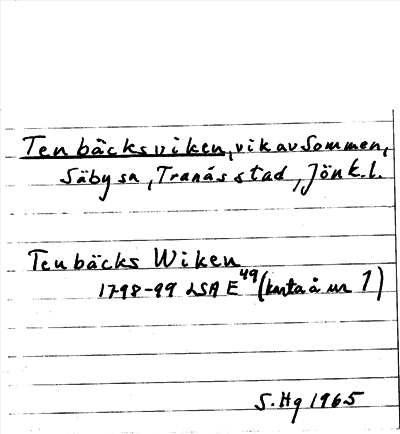 Tenbäcksviken, vik av Sommen,
Säby sn, Tranås stad, Jönk.l.
Tenbäcks Wiken
1798-99 LSA E49 (karta å nr 1)
S. Hg 1965